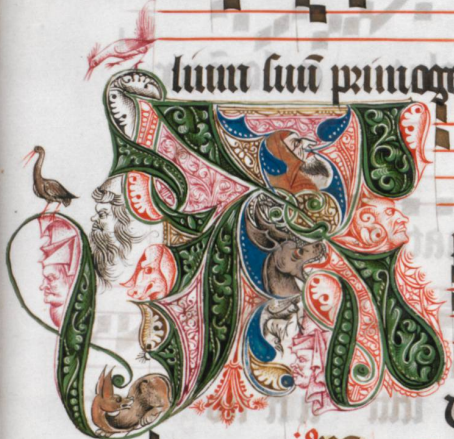 lium suū primog